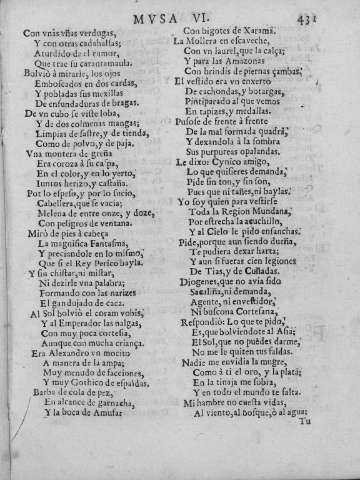 MVSA VI. 431
Con vnas vñas verdugas,
Y con otras cadahalsas;
Aturdido de el rumor,
Que trae su carantamaula.
Bolviò à mirarle, los ojos
Emboscados en dos cardas,
Y pobladas sus mexillas
De enfundaduras de bragas.
De vn cubo se viste loba,
Y de dos colmenas mangas;
Limpias de sastre, y de tienda,
Como de polvo, y de paja.
Vna montera de greña
Era coroza à su caspa,
En el color, y en lo yerto,
Iuntos herizo, y castaña.
Por lo espeso, y por lo sucio,
Cabellera, que se vacia;
Melena de entre onze, y doze,
Con peligros de ventana.
Mirò de pies à cabeça
La magnifica Fantasma,
Y preciandole en lo mismo,
Que si el Rey Perico bayla.
Y sin chistar, ni mistar,
Ni dezirle vna palabra;
Formando con las narizes
El gandujado de caca.
Al Sol bolviò el coram vobis,
Y al Emperador las nalgas,
Con muy poca cortesia,
Aunque con mucha criança.
Era Alexandro vn mocito
A manera de la ampa;
Muy menudo de facciones,
Y muy Gothico de espaldas.
Barba de cola de pez,
En alcance de garnacha,
Y la boca de Amufar
Con bigotes de Xaramà.
La Mollera en escaveche,
Con vn laurel, que la calça;
Y para las Amazonas
Con brindis de piernas çambas.
El vestido era vn enxerto
De cachondas, y botargas,
Pintiparado al que vemos
En tapizes, y medallas.
Pusose de frente à frente
De la mal formada quadra,
Y dexandola à la sombra
Sus purpureas opalandas.
Le dixo: Cynico amigo,
Lo que quisieres demanda,
Pide sin ton, y sin son,
Pues que ni tañes, ni baylas.
Yo soy quien para vestirse
Toda la Region Mundana,
Por estrecha la acuchillo,
Y al Cielo le pido ensanchas.
Pide, porque aun siendo dueña,
Te pudiera dexar harta;
Y aun si fueras cien legiones
De Tias, y de Cuñadas.
Diogenes, que no avia sido
Sacaliña, ni demanda,
Agente, ni envestidor,
Ni buscona Cortesana,
Respondiò: Lo que te pido,
Es, que bolviendote al Asia;
El Sol, que no puedes darme,
No me le quiten tus faldas.
Nadie me envidia la mugre,
Como à ti el oro, y la plata;
En la tinaja me sobra,
Y en todo el mundo te falta.
Mi hambre no cuesta vidas,
Al viento, al bosque, ò al agua;
Tu